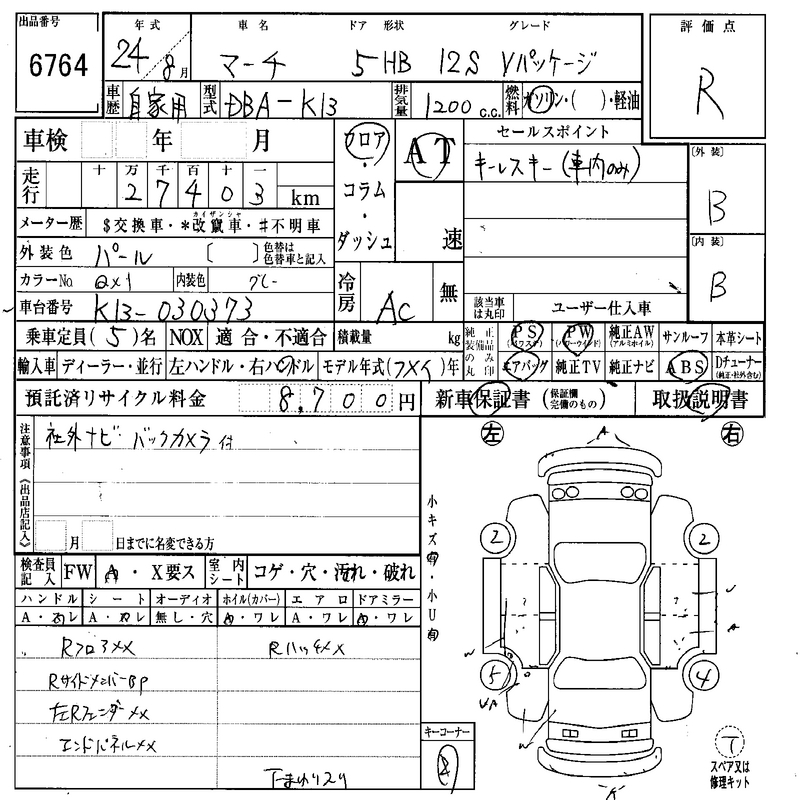 出品番号 年式 車名 ドア 形状 グレード 評価点
6764 24/8月 マーチ 5HB 12S Vパッケージ R
車歴 自家用 型式 DBA-K13 排気量 1200c.c. 燃料 ガソリン・( )・軽油
車検 年 月 フロア AT セールスポイント
キーレスキー(車内のみ) 〔外装〕
走行 十 万 千 百 十 一
27403 km コラム B
メーター歴 $交換車・*改竄車・♯不明車
カイザンシャ
ダッシュ 速 〔内装〕
外装色 パール 〔 〕色替は色替車と記入 B
カラーNo. QX1 内装色 グレー 冷房 AC 無
車台番号 K13-030373 該当車は丸印 ユーザー仕入車
乗車定員(5)名 NOX 適合・不適合 積載量 kg 純正装備品のみ丸印 PS(パワステ) PW(パワーウインド) 純正AW(アルミホイル) サンルーフ 本革シート
輸入車 ディーラー・並行 左ハンドル・右ハンドル モデル年式( )年 エアバッグ 純正TV 純正ナビ ABS Dチューナー(純正・社外含む)
預託済リサイクル料金 8,700円 新車保証書(保証欄完備のもの) 取扱説明書
注意事項《出品店記入》 社外ナビ バックカメラ付
月 日までに名変できる方
左 右
小キズ有・小U有
検査員記入 FW A・X要ス 室内シート コゲ・穴・汚れ・破れ
ハンドル シート オーディオ ホイル(カバー) エアロ ドアミラー
A・ワレ 無し・穴 A・ワレ A・ワレ A・ワレ
RフロアXX RハッチXX
RサイドメンバーBP
左RフェンダーXX
エンドパネルXX
下まわりスリ
キーコーナー
2 2
5 4
A
W
W
T
スペア又は
修理キット